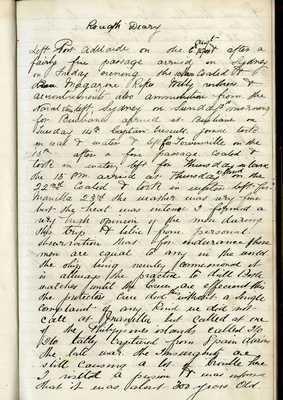 Rough Diary
Left Port Adelaide on the 6 Augst after a
fairly fine passage arrived in Sydney
on Friday evening the Coaled &
Magazine Rifles &
also ammunition from the
Naval left Sydney on Sunday morning
for Brisbane arrived at Brisbane on
Tuesday 14th Captain joined took
in coal & water & left for Townsville on the
after a fine passage Coaled &
took in water, left for Thursday Island
the 18 PM arrived at Thursday Island on the
22nd Coaled & took in water left for
Manila 23rd the weather was very fine
but the heat was intense I formed a
very high opinion of the men during
this trip & believe from personal
observation that for endurance these
men are equal to any in the world
the ship being newly Commissioned it
is always the practice to drill Both
watches until the Crew are efficient this
the protector Crew did without a single
complaint of any kind we did not
Call at Manilla but Called at one
of the Philippines islands called Ilo
Ilo lately Captured from Spain during
the late war. the are
still causing a lot of trouble here
I visited a prison & was informed
that it was about 300 years old